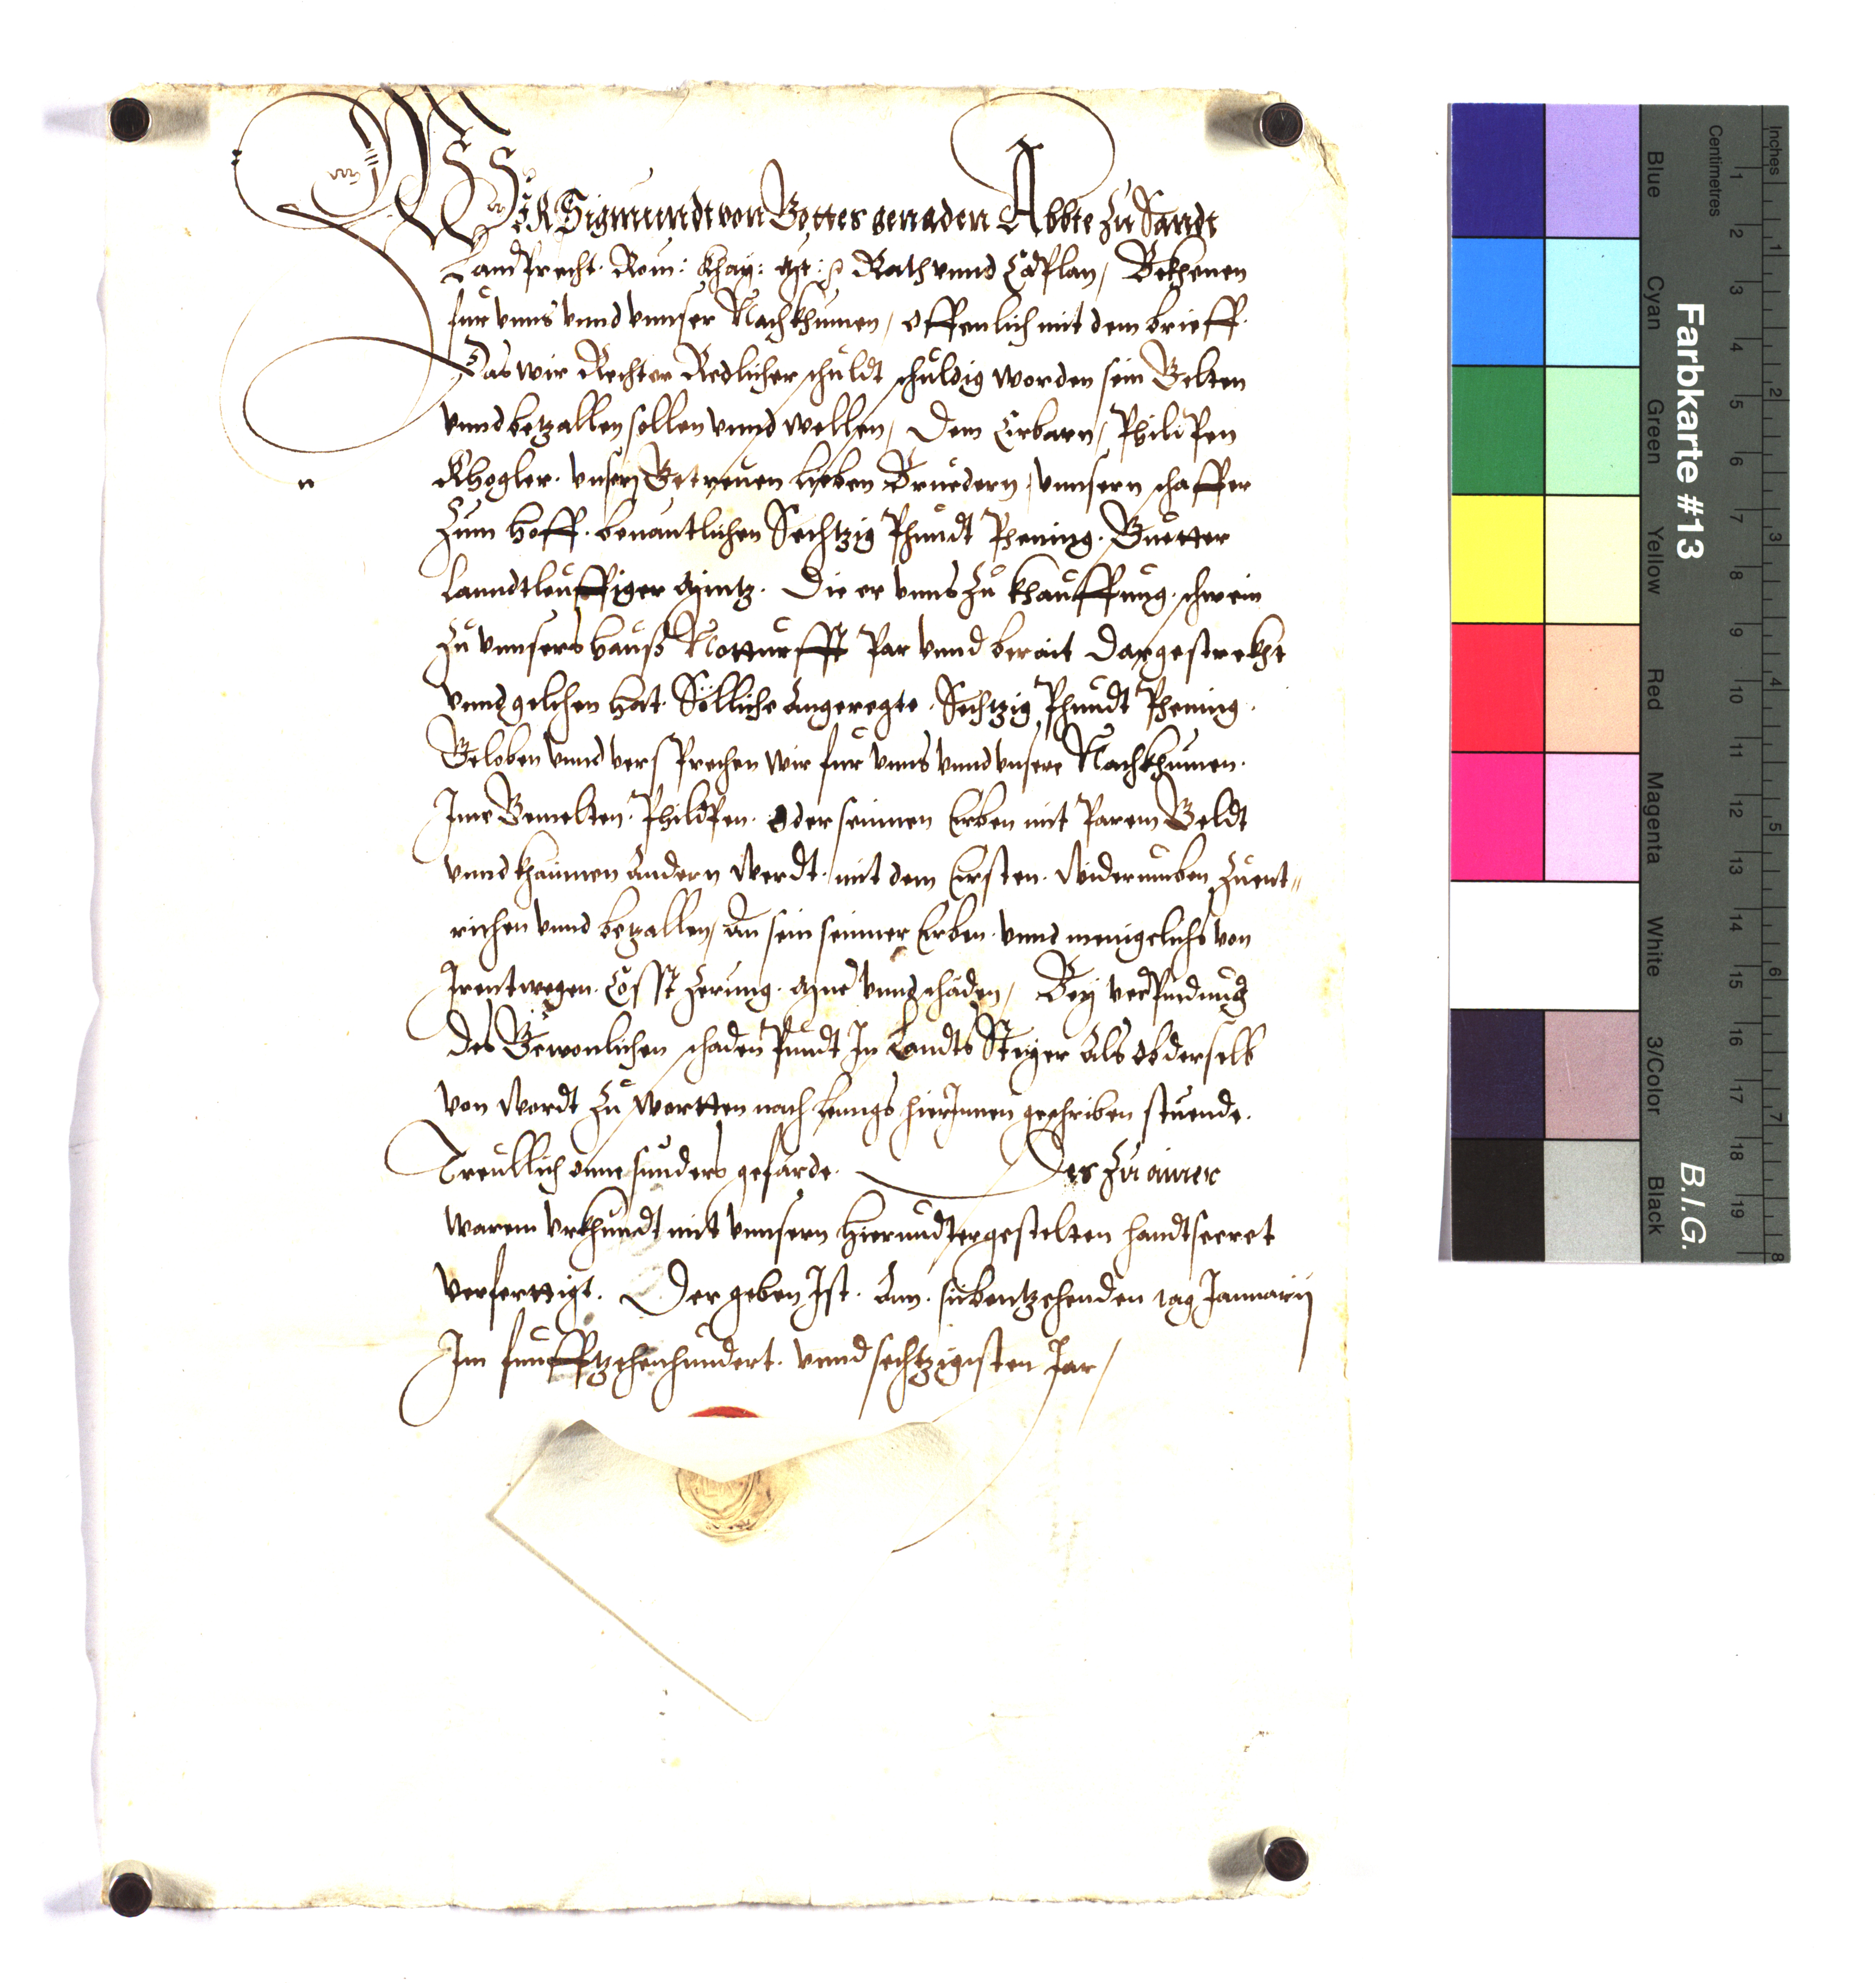 WIR Sigmundt von Gottes genaden Abbte zu Sandt
Landprecht. Röm: Khay: Mt: Rath vnnd Caplan, Bekhenen
für vnns vnnd vnnser Nachkhumen, offenlich mit dem brieff.
Das wir Rechter Redlicher schuldt schuldig worden sein Gelten
vnnd betzallen sollen vnnd wellen, Dem Erbarn, Philipen
Khogler. vnsern Getreuen lieben Bruedern, vnnsern schaffer
Zum Hoff. benantlichen Sechtzig Phundt Phening. Guetter
Lanndtleuffiger Müntz. Die er vnns zu khauffung. schwein
Zu vnnsers Hauß Notturfft Par vnnd berait Dargestrekht
vnnd gelihen hat. Söllliche angeregte. Sechtzig Phundt Phening.
Geloben vnnd versprechen wir für vnns vnnd vnsere Nachkhumen.
Ime Gemelten. Philipen. oder seinnen Erben mit Parem Geldt
vnnd khainnen andern Werdt. mit dem Ersten. Widerumben Zuent=
richen vnnd betzallen, An sein seinner Erben. vnnd menigclichs von
Irentwegen. Cosst Zerung. Mue vnnd schäden, Bey verpindung
des Gewonlichen schaden Pundt In Landts Steyer Als ob derselb
von Wordt Zu Wortten nach lenngs hierInnen geschriben stuende.
Treullich onne sunders gefärde. Des zu ainer
warem vrkhundt mit vnnsern hierundtergestelten handtsecret
verferttigt. Der geben Ist. Am. sübentzehenden tag Januarÿ
Im funfftzehenhundert. vnnd sechtzigisten Jar,
Farbkarte #13
B.I.G.
Inches
Centimetres
Blue
Cyan
Green
Yellow
Red
Magenta
White
3/Color
Black
1 2 3 4 5 6 7 8 9 10 11 12 13 14 15 16 17 18 19
1 2 3 4 5 6 7 8